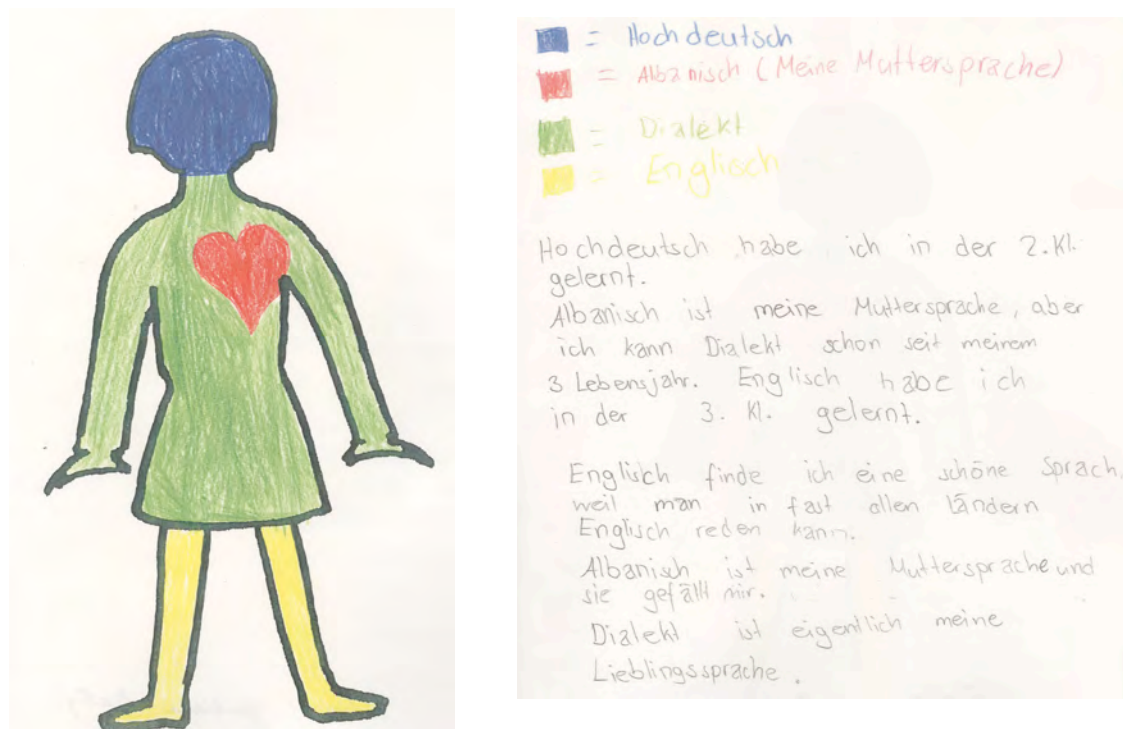 = Hochdeutsch
= Albanisch (Meine Muttersprache)
= Dialekt
= Englisch
Hochdeutsch habe ich in der 2. Kl.
gelernt.
Albanisch ist meine Muttersprache, aber
ich kann Dialekt schon seit meinem
3 Lebensjahr. Englisch habe ich
in der 3. Kl. gelernt.
Englisch finde ich eine schöne Sprach,
weil man in fast allen Ländern
Englisch reden kann.
Albanisch ist meine Muttersprache und
sie gefällt mir.
Dialekt ist eigentlich meine
Lieblingssprache.